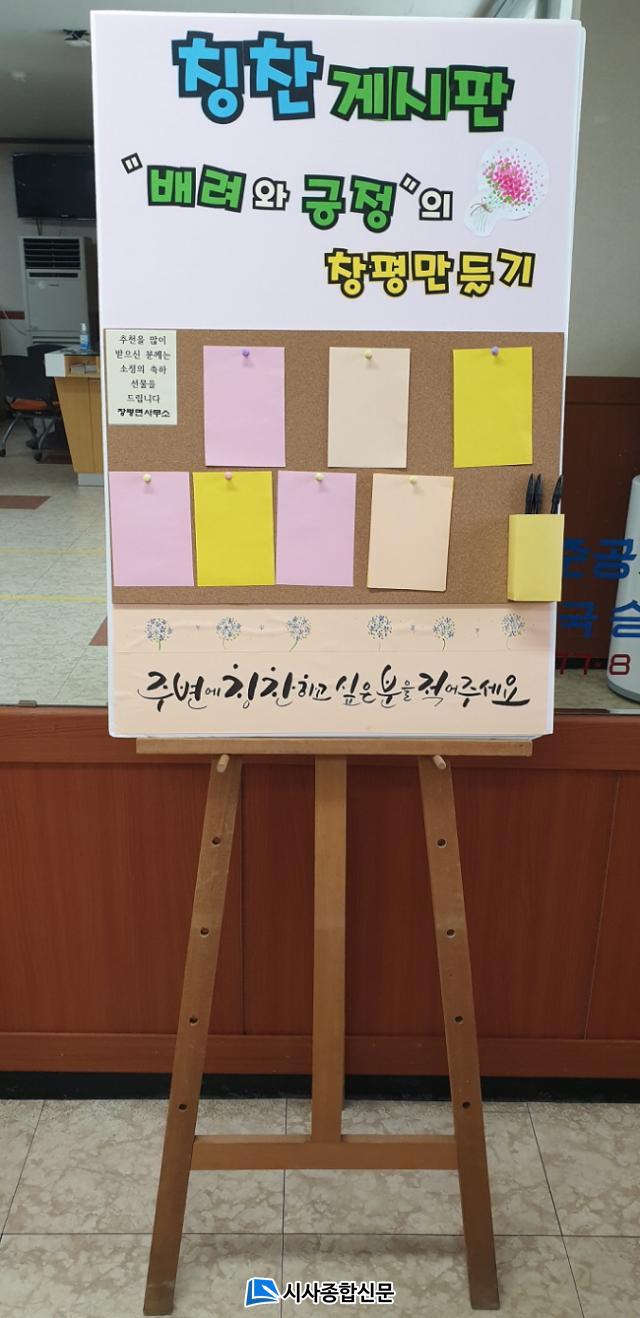 칭찬 게시판
"배려와 긍정"의
창평만들기
추천을 많이
받으신 분께는
소정의 축하
선물을
드립니다
창평면사무소
주변에 칭찬하고 싶은 분을 적어주세요
준공
국승
778
시사종합신문